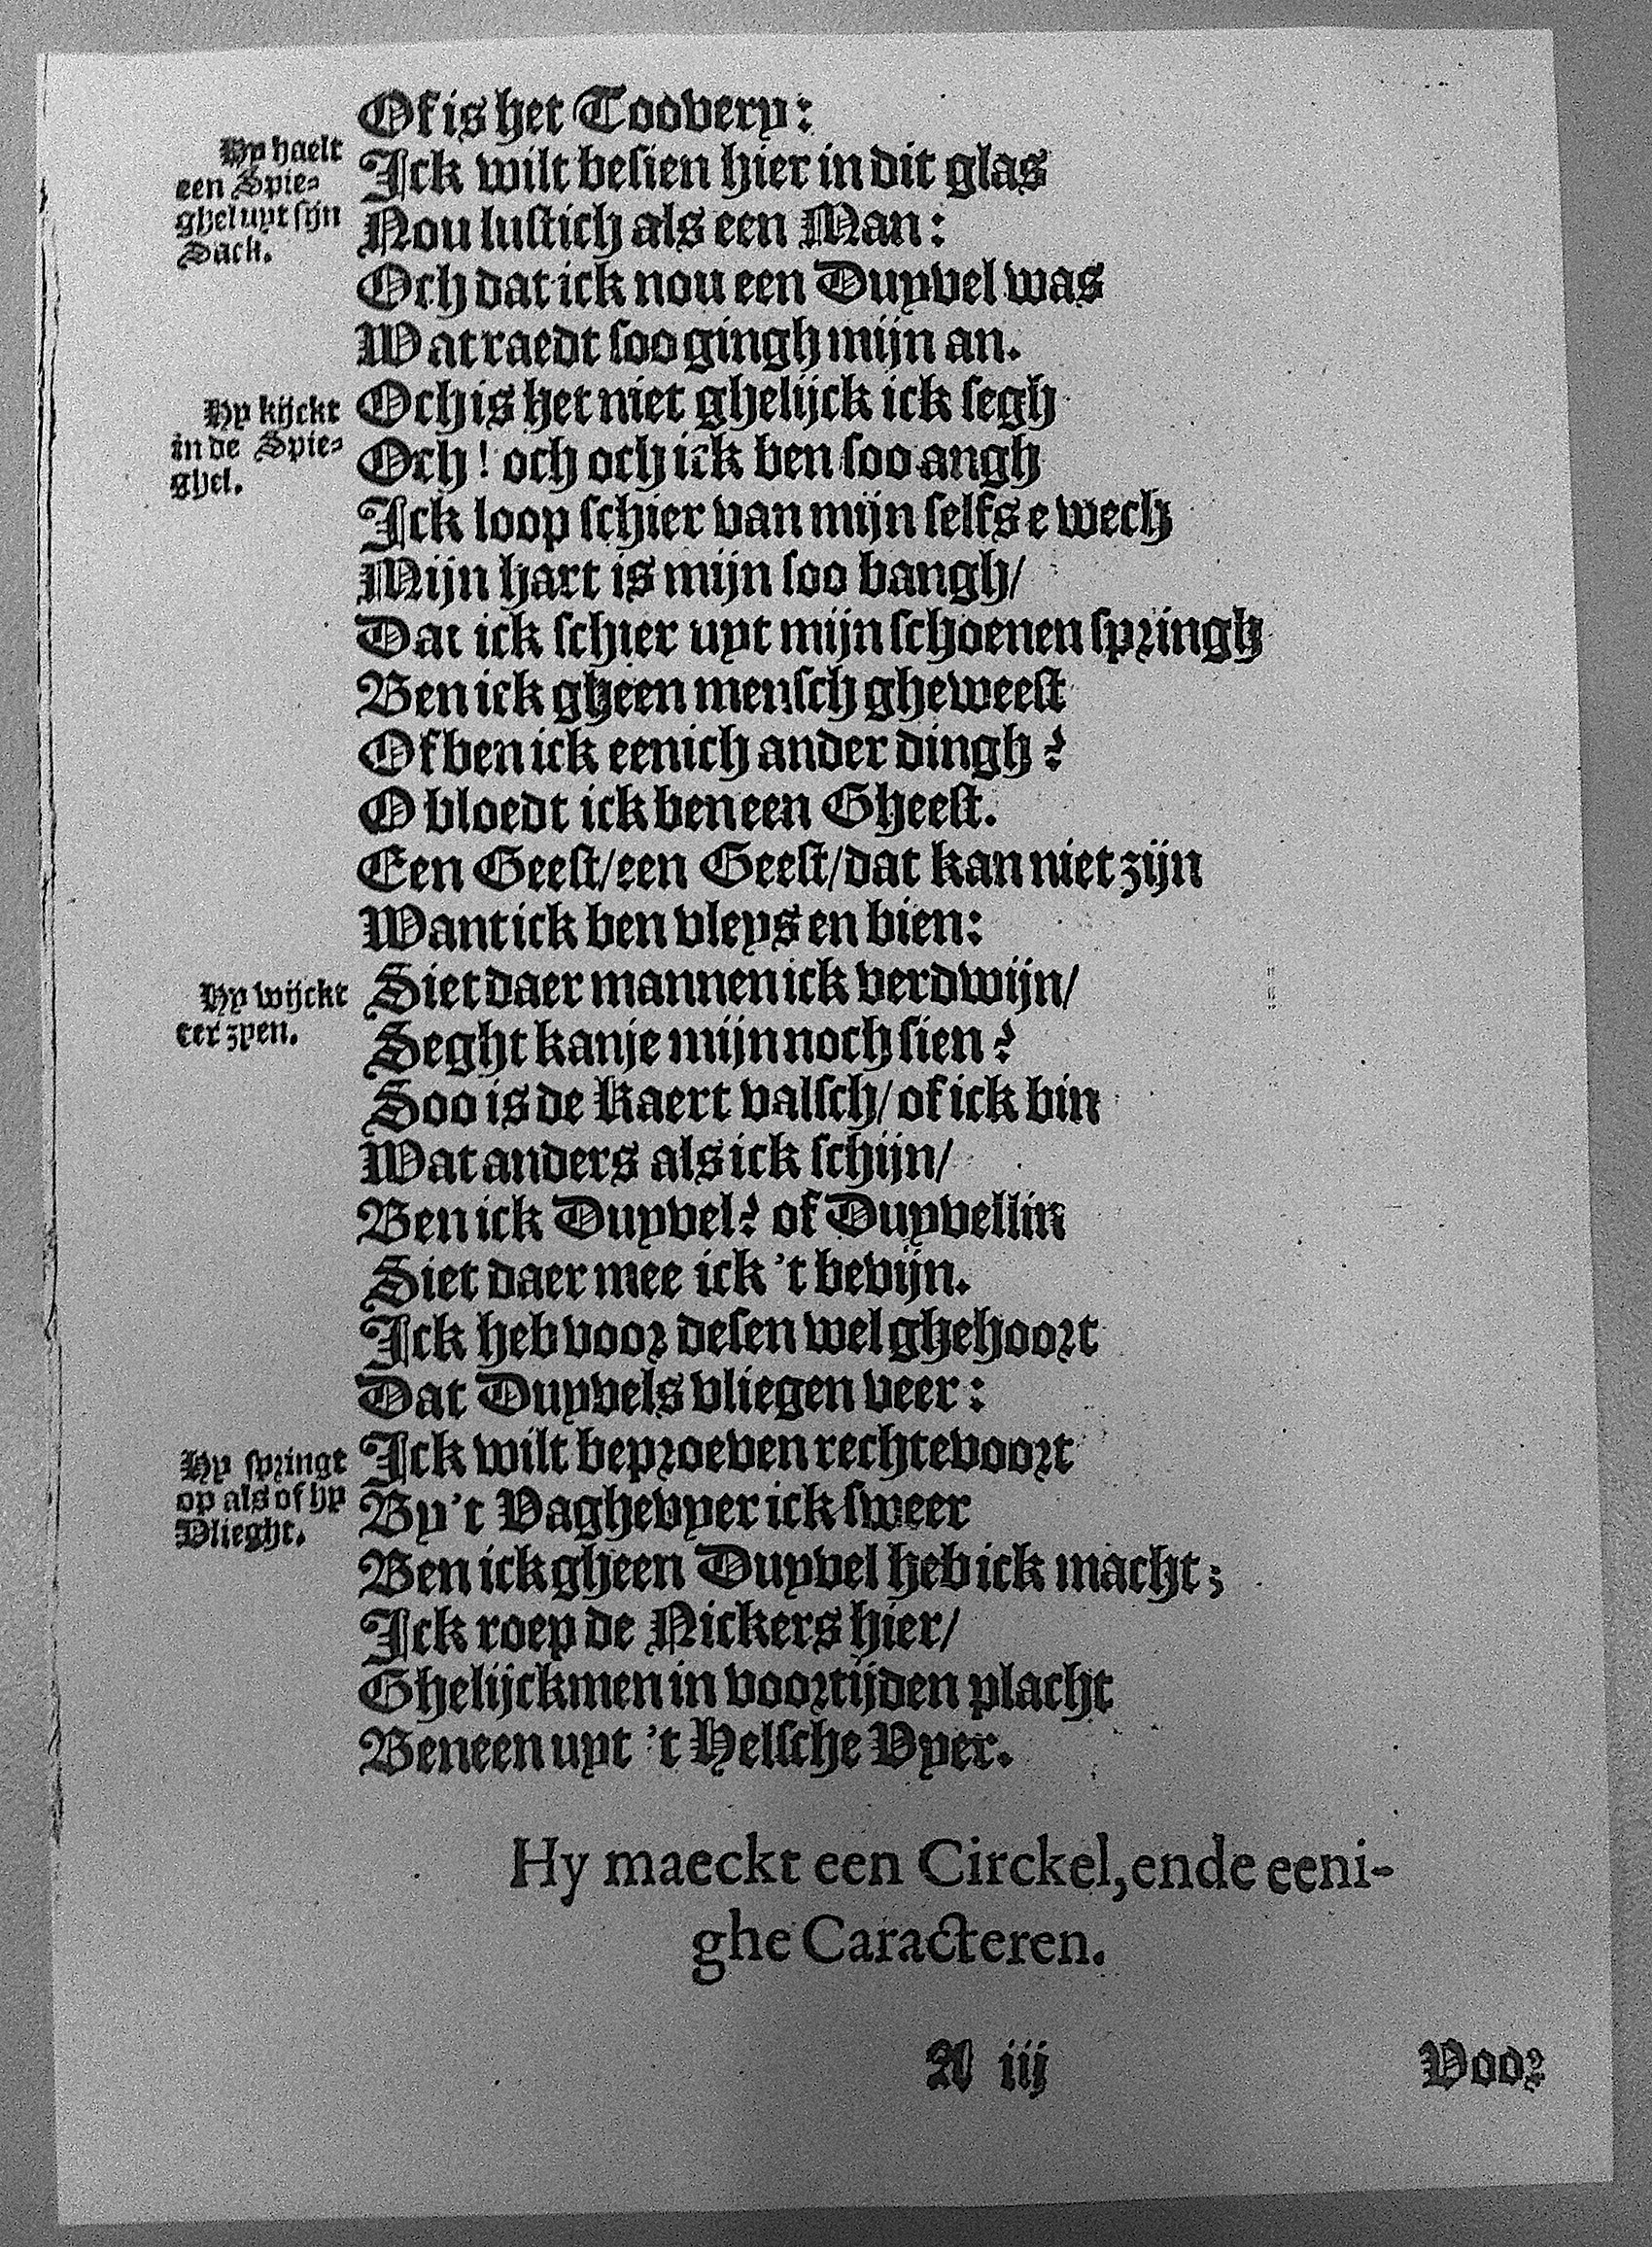 Of is het Toovery:
Hy haelt
een Spie-
ghel uyt sijn
Sack.
Ick wilt besien hier in dit glas
Nou lustich als een Man:
Och dat ick nou een Duyvel was
Wat raedt soo gingh mijn an.
Hy kijckt
in de Spie-
ghel.
Och is het niet ghelijck ick segh
Och! och och ick ben soo angh
Ick loop schier van mijn selfs e wech
Mijn hart is mijn soo bangh/
Dat ick schier uyt mijn schoenen springh
Ben ick gheen mensch gheweest
Of ben ick eenich ander dingh?
O bloedt ick ben een Gheest.
Een Geest/een Geest/dat kan niet zijn
Want ick ben vleys en bien:
Hy wijckt
ter zyen.
Siet daer mannen ick verdwijn/
Seght kanje mijn noch sien?
Soo is de Kaert valsch/of ick bin
Wat anders als ick schijn/
Ben ick Duyvel? of Duyvellin
Siet daer mee ick 't bevijn.
Ick heb voor desen wel ghehoort
Dat Duyvels vliegen veer:
Hy springt
op als of hy
Vlieght.
Ick wilt beproeven rechtevoort
By 't Vaghevyer ick sweer
Ben ick gheen Duyvel heb ick macht;
Ick roep de Nickers hier/
Ghelijckmen in voortijden placht
Beneen uyt 't Helsche Vyer.
Hy maeckt een Circkel, ende eeni-
ghe Caracteren.
A iij
Voor